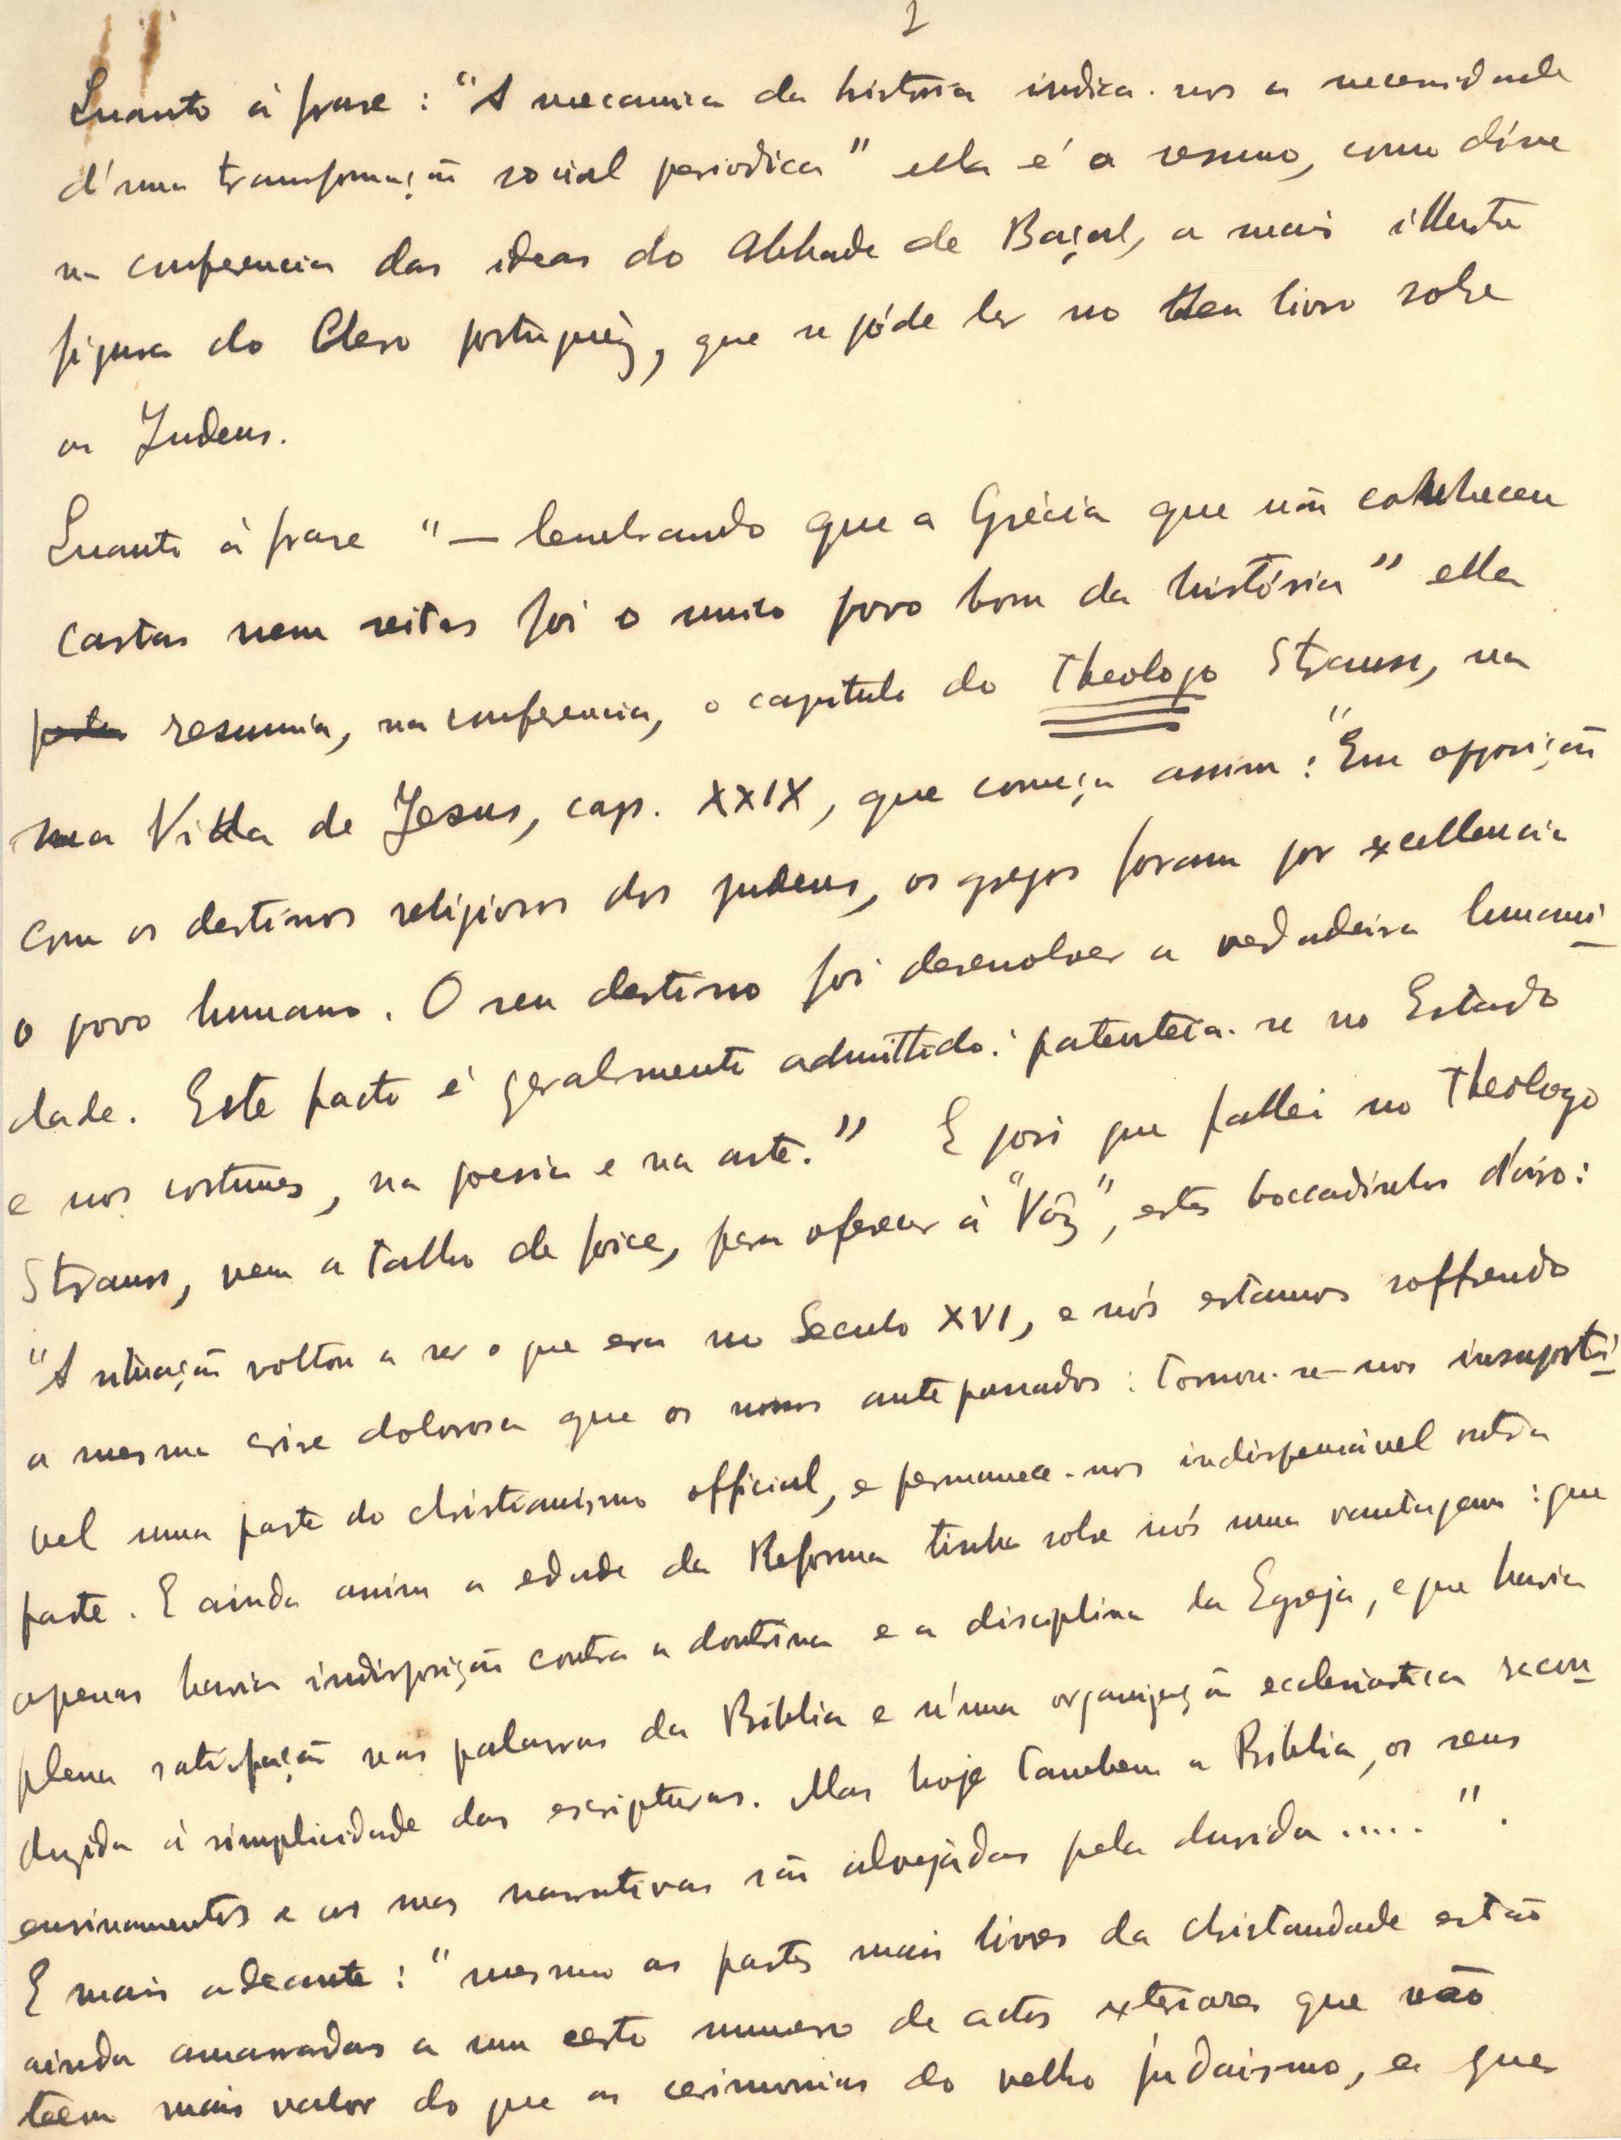 2
Quanto á frase: "A mecanica da história indica-nos a necessidade
d'uma transformação social periodica" ella é o resumo, como disse
na conferencia das ideas do Abbade de Baçal, a mais illustre
figura do Clero português, que se póde ler no seu livro sobre
os Judeus.
Quanto á frase "— lembrando que a Grécia que não conheceu
castas nem seitas foi o unico povo bom da história" ella
resumia, na conferencia, o capitulo do Theologo Strauss, na
sua Vida de Jesus, cap. XXIX, que começa assim: "Em opposição
com os destinos religiosos dos judeus, os gregos foram por excellencia
o povo humano. O seu destino foi desenvolver a verdadeira humani-
dade. Este facto é geralmente admittido: patenteia-se no Estado
e nos costumes, na poesia e na arte." E pois que fallei no Theologo
Strauss, vem a talho de foice, para oferecer á "Vóz", estes boccadinhos d'oiro:
"A situação voltou a ser o que era no Seculo XVI, e nós estamos soffrendo
a mesma crise dolorosa que os nossos antepassados: tornou-se-nos insuportá-
vel uma parte do christianismo official, e permanece-nos indispensável outra
parte. E ainda assim a edade da Reforma tinha sobre nós uma vantagem: que
apenas havia indisposição contra a doutrina e a disciplina da Egreja, e que havia
plena satisfação nas palavras da Biblia e n'uma organização ecclesiastica recon-
duzida á simplicidade das escripturas. Mas hoje tambem a Biblia, os seus
ensinamentos e as suas narrativas são alvejadas pela duvida ..... ".
E mais adeante: "mesmo as partes mais livres da christandade estão
ainda amarradas a um certo numero de actos exteriores que não
teem mais valor do que as cerimonias do velho judaismo, e que